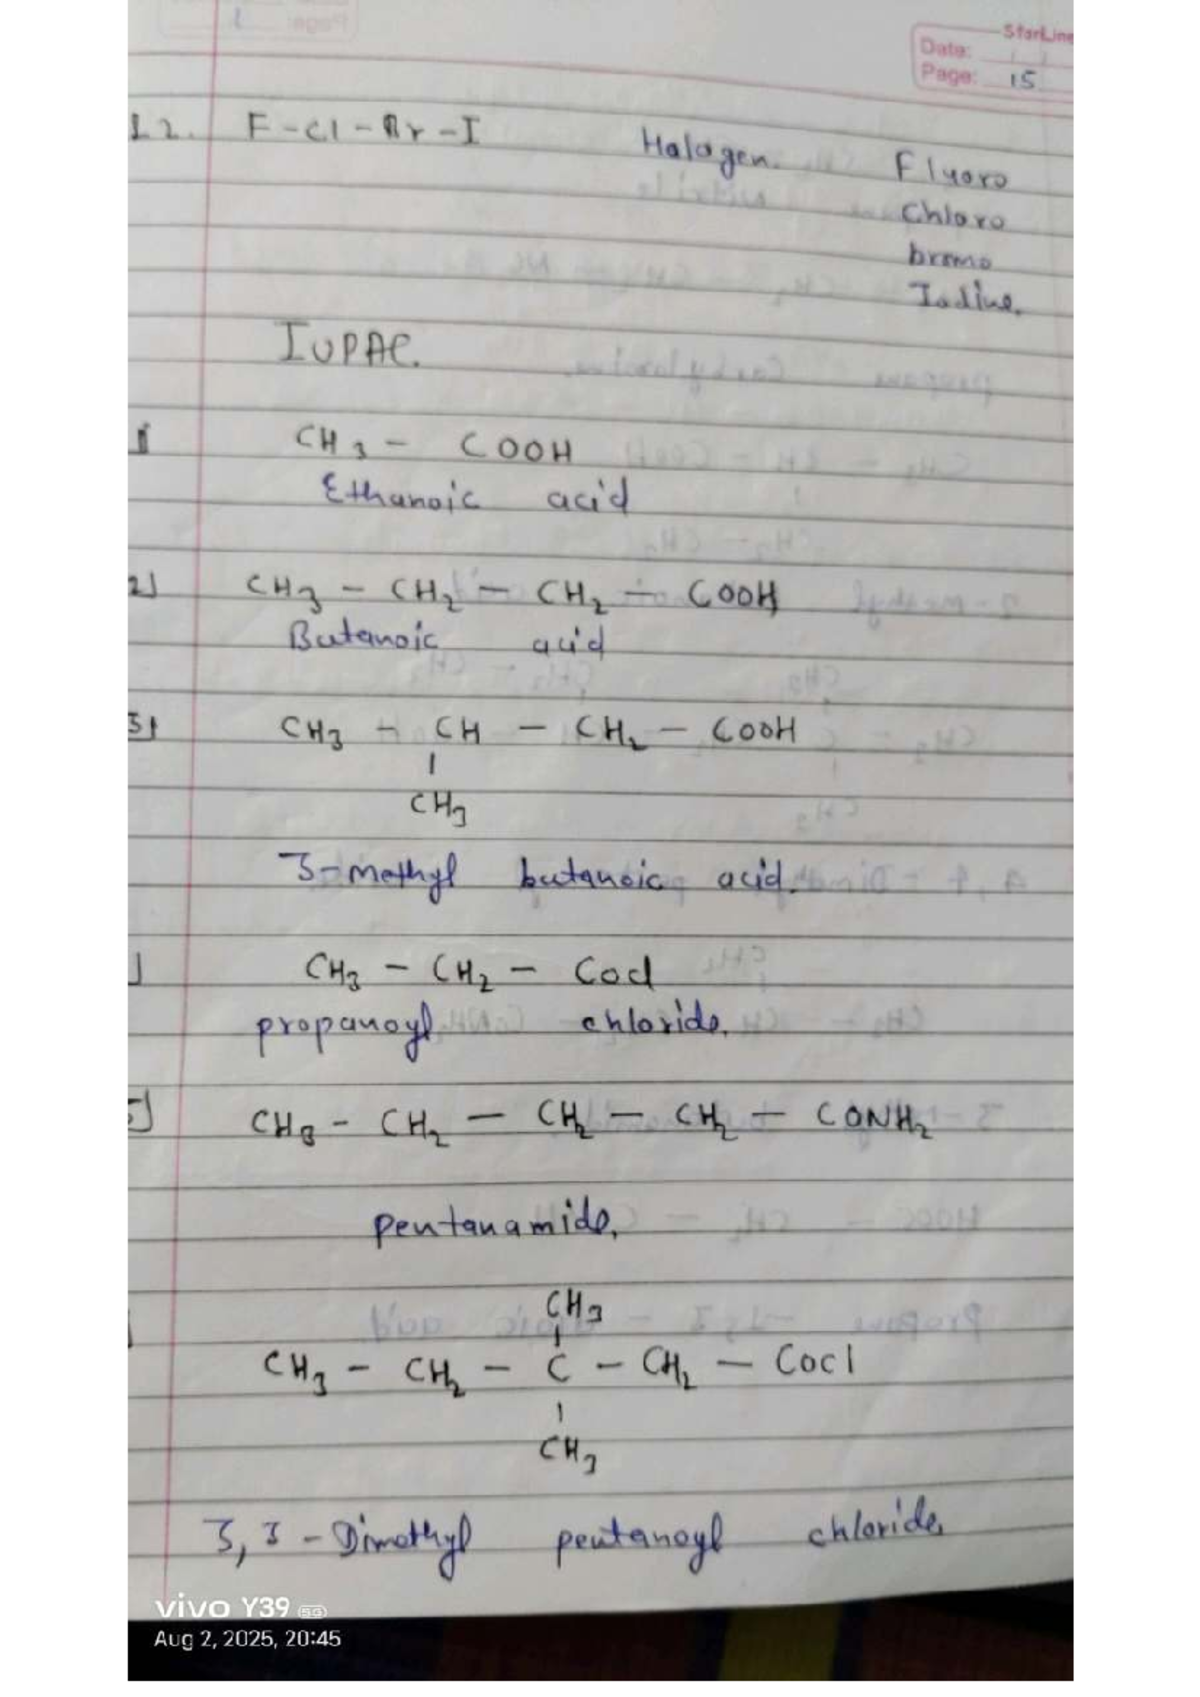 StarLine
Date:
Page: 15
12. F-Cl-Br-I Halogen. Fluoro
Chloro
bromo
Iodine.
IUPAC.
CH3 - COOH
Ethanoic acid
2) CH3 - CH2 - CH2 - COOH
Butanoic acid
3) CH3 - CH - CH2 - COOH
|
CH3
3-methyl butanoic acid.
) CH3 - CH2 - Cocl
propanoyl chloride.
5) CH3 - CH2 - CH2 - CH2 - CONH2
pentanamide.
CH3
|
CH3 - CH2 - C - CH2 - Cocl
|
CH3
3, 3 - Dimethyl pentanoyl chloride.
vivo Y39 5G
Aug 2, 2025, 20:45